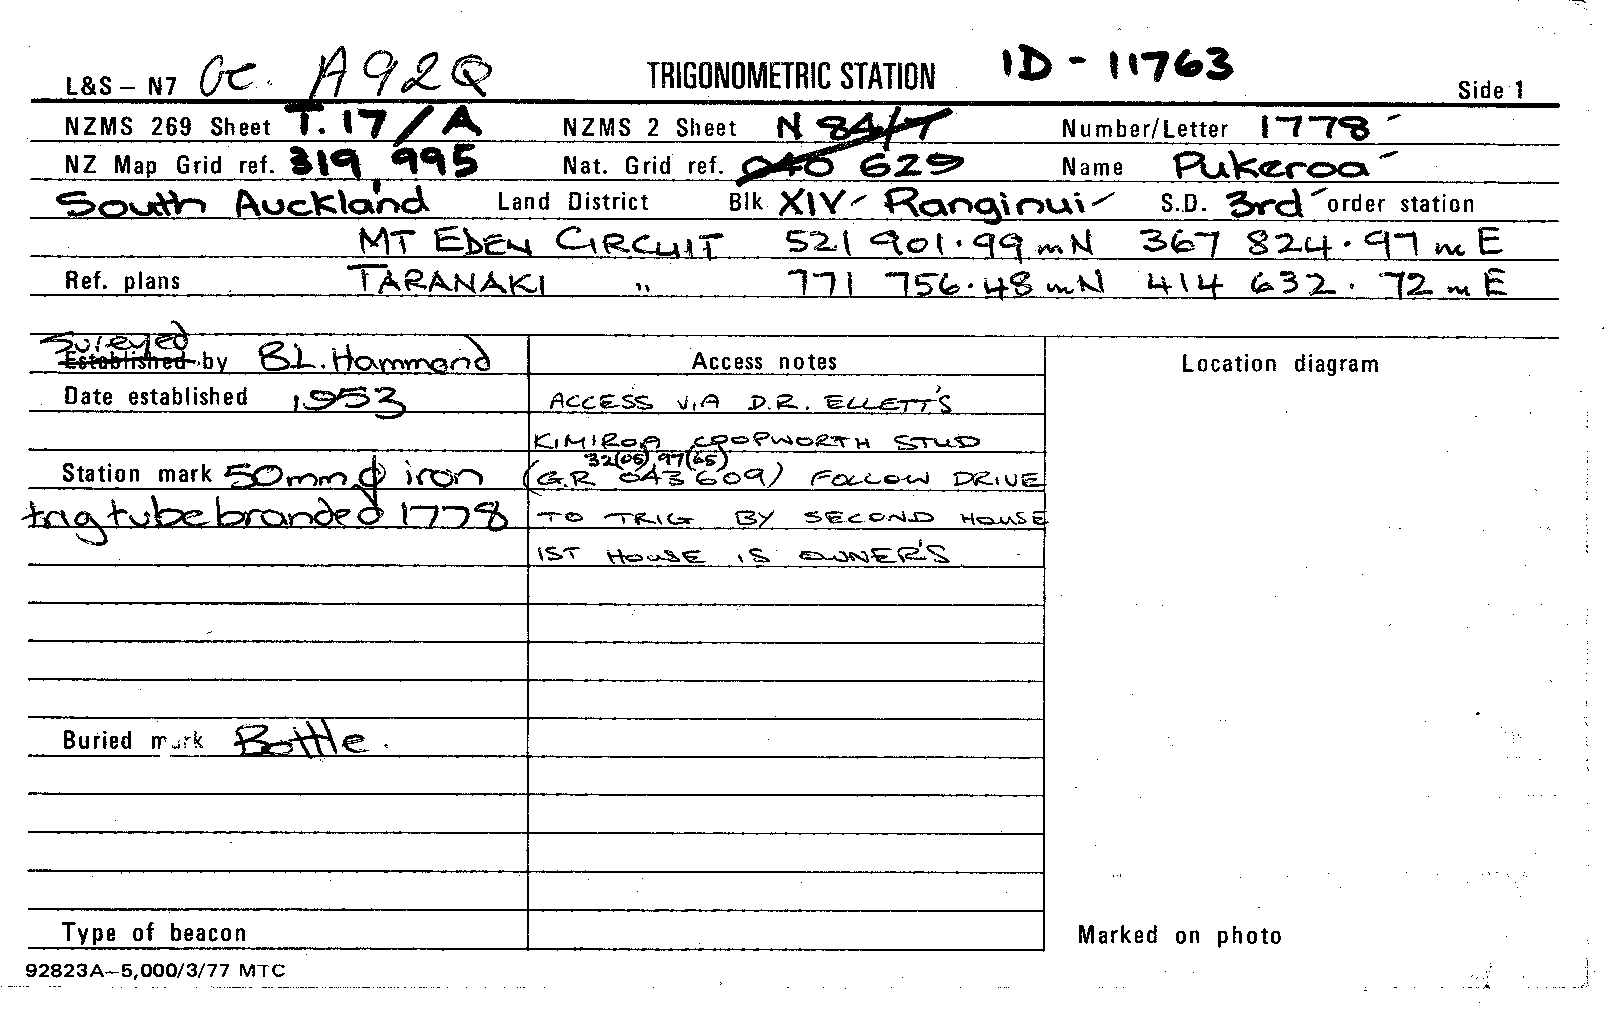 L&S – N7 GC. A92Q TRIGONOMETRIC STATION ID - 11763 Side 1
NZMS 269 Sheet T.17/A NZMS 2 Sheet N 84/7 Number/Letter 1778
NZ Map Grid ref. 319 995 Nat. Grid ref. 040 629 Name Pukeroa
South Auckland Land District Blk XIV Ranginui S.D. 3rd order station
MT EDEN CIRCUIT 521 901.99 mN 367 824.97 mE
Ref. plans TARANAKI " 771 756.48 mN 414 632.72 mE
Sureyed
Established by B.L. Hammond Access notes Location diagram
Date established 1953 ACCESS VIA D.R. ELLETT'S
KIMIROA COOPWORTH STUD
32(05) 97(65)
Station mark 50mm ϕ iron (G.R 043 609) FOLLOW DRIVE
trig tube branded 1778 TO TRIG BY SECOND HOUSE
1ST HOUSE IS OWNER'S
Buried mark Bottle.
Type of beacon Marked on photo
92823A–5,000/3/77 MTC